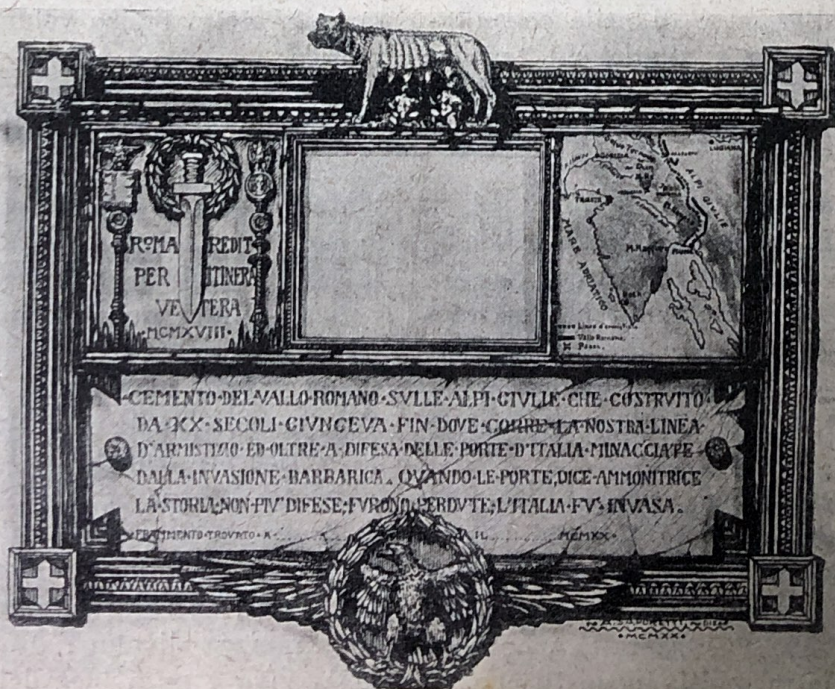 ROMA REDIT
PER ITINERA
VETERA
·MCMXVIII·
LUBIANA
ALPI GIULIE
TRIESTE
MARE ADRIATICO
M. Maggiore
Fiume
Pola
Linea d'armistizio
Vallo Romano
CEMENTO·DEL·VALLO·ROMANO·SVLLE·ALPI·GIVLIE·CHE·COSTRVITO
DA·XX·SECOLI·GIVNGEVA·FIN·DOVE·CORRE·LA·NOSTRA·LINEA·
D'ARMISTIZIO·ED·OLTRE·A·DIFESA·DELLE·PORTE·D'ITALIA·MINACCIATE
DALLA·INVASIONE·BARBARICA. QVANDO·LE·PORTE, DICE·AMMONITRICE
LA·STORIA, NON·PIV'DIFESE, FVRONO·PERDVTE, L'ITALIA·FV'·INVASA.
FRAMMENTO·TROVATO·A............IL............MCMXX·
·MCMXX·